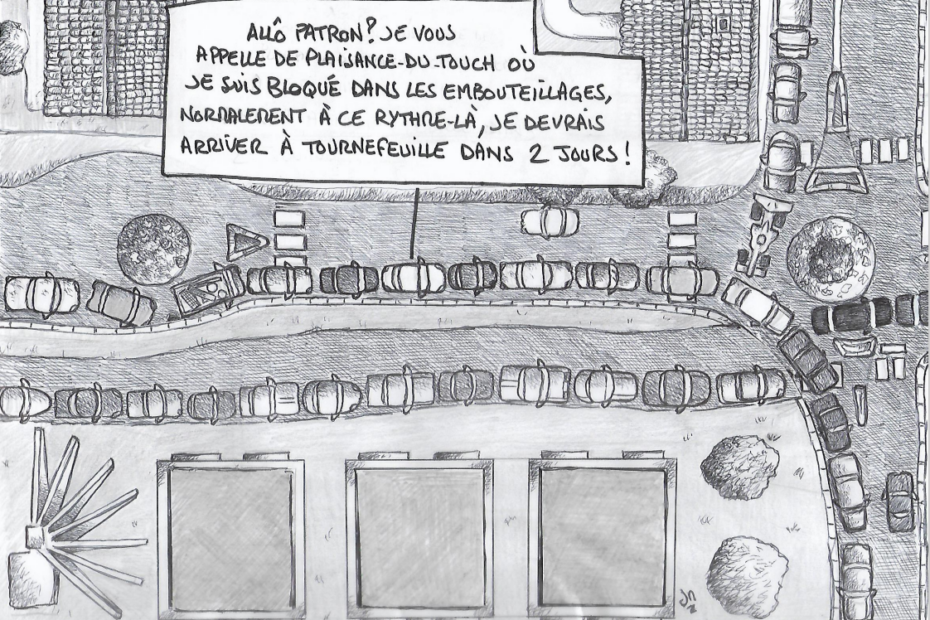 ALLÔ PATRON? JE VOUS
APPELLE DE PLAISANCE-DU-TOUCH OÙ
JE SUIS BLOQUÉ DANS LES EMBOUTEILLAGES,
NORMALEMENT À CE RYTHME-LÀ, JE DEVRAIS
ARRIVER À TOURNEFEUILLE DANS 2 JOURS!